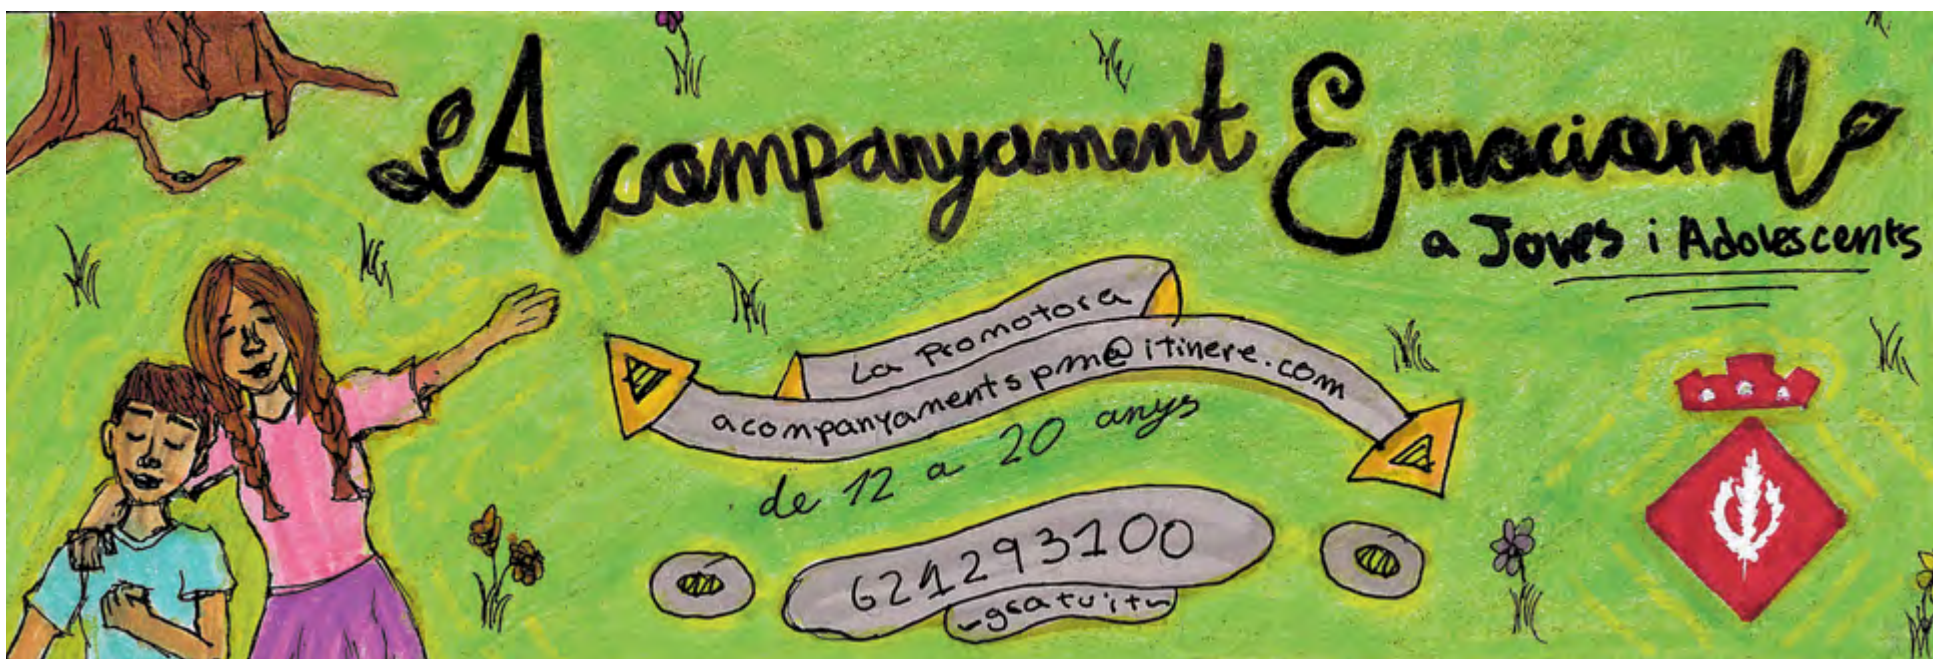 Acompanyament Emocional
a Joves i Adolescents
La Promotora
acompanyamentspm@itinere.com
de 12 a 20 anys
621293100
-gratuito